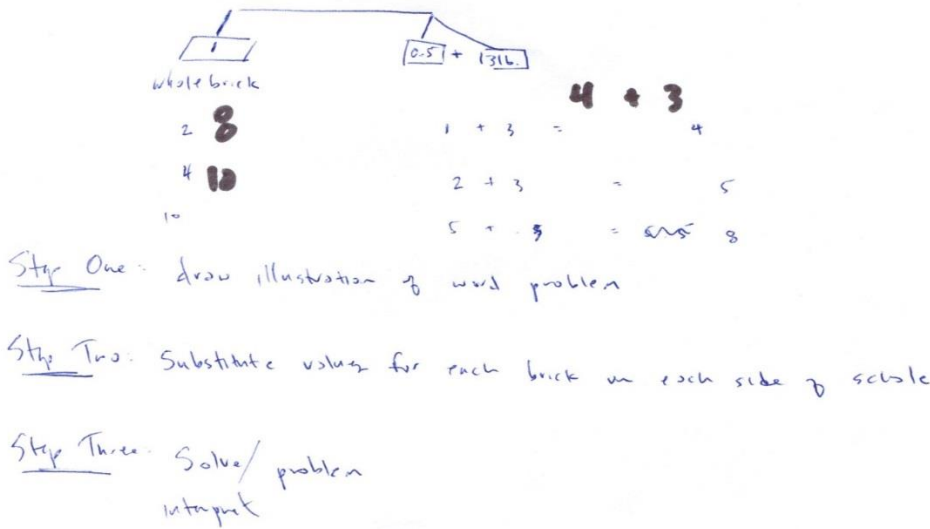 1 0.5 + 3lb.
whole brick
4 + 3
2 8 1 + 3 = 4
4 10 2 + 3 = 5
10 5 + 3 = 8
Step One: draw illustration of word problem
Step Two: Substitute values for each brick on each side of schale
Step Three: Solve/ problem
interpret